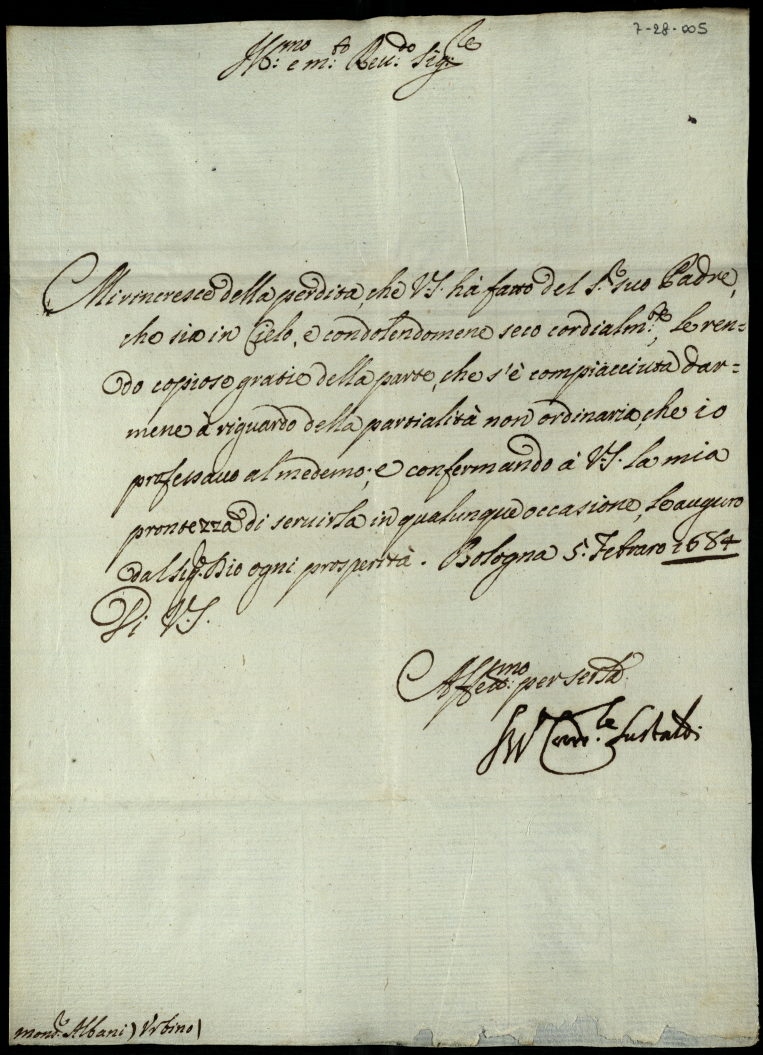 7-28-005
Ill:mo e m:to Reu:do Sig:re
Mi rincresce della perdita, che V.S. hà fatto del S.r suo Padre,
che sia in Cielo, e condolendomene seco cordialm:te, le ren=
do copiose gratie della parte, che s'è compiacciuta dar=
mene à riguardo della partialità non ordinaria, che io
professauo al medemo; e confermando à V.S. la mia
prontezza di seruirla in qualunque occasione, le auguro
dal Sig.r Dio ogni prosperità. Bologna 5. Febraro 1684
Di V.S.
Aff:mo per ser:la
Card.le Gastaldi
mons.r Albani) Vrbino)